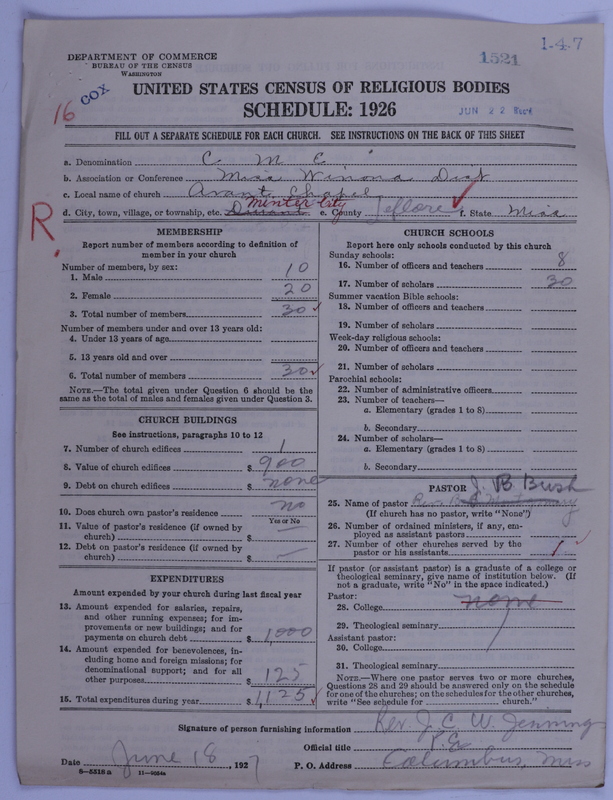 1-4-7
1521
DEPARTMENT OF COMMERCE
BUREAU OF THE CENSUS
WASHINGTON
16 COX
UNITED STATES CENSUS OF RELIGIOUS BODIES
SCHEDULE: 1926
JUN 22
FILL OUT A SEPARATE SCHEDULE FOR EACH CHURCH. SEE INSTRUCTIONS ON THE BACK OF THIS SHEET
a. Denomination C M E
b. Association or Conference Miss Winona Dist
c. Local name of church Avant Chapel
d. City, town, village, or township, etc. Minter City e. County Leflore f. State Miss
R.
MEMBERSHIP
Report number of members according to definition of
member in your church
Number of members, by sex:
1. Male 10
2. Female 20
3. Total number of members 30
Number of members under and over 13 years old:
4. Under 13 years of age
5. 13 years old and over
6. Total number of members 30
NOTE.—The total given under Question 6 should be the
same as the total of males and females given under Question 3.
CHURCH BUILDINGS
See instructions, paragraphs 10 to 12
7. Number of church edifices 1
8. Value of church edifices $ 900
9. Debt on church edifices $ none
10. Does church own pastor's residence no
Yes or No
11. Value of pastor's residence (if owned by
church) $ —
12. Debt on pastor's residence (if owned by
church) $ —
EXPENDITURES
Amount expended by your church during last fiscal year
13. Amount expended for salaries, repairs,
and other running expenses; for im-
provements or new buildings; and for
payments on church debt $ 1,000
14. Amount expended for benevolences, in-
cluding home and foreign missions; for
denominational support; and for all
other purposes $ 125
15. Total expenditures during year $ 1,125
CHURCH SCHOOLS
Report here only schools conducted by this church
Sunday schools:
16. Number of officers and teachers 8
17. Number of scholars 30
Summer vacation Bible schools:
18. Number of officers and teachers
19. Number of scholars
Week-day religious schools:
20. Number of officers and teachers
21. Number of scholars
Parochial schools:
22. Number of administrative officers
23. Number of teachers—
a. Elementary (grades 1 to 8)
b. Secondary
24. Number of scholars—
a. Elementary (grades 1 to 8)
b. Secondary
PASTOR J. B Bush
25. Name of pastor Rev
(If church has no pastor, write "None")
26. Number of ordained ministers, if any, em-
ployed as assistant pastors
27. Number of other churches served by the
pastor or his assistants 1
If pastor (or assistant pastor) is a graduate of a college or
theological seminary, give name of institution below. (If
not a graduate, write "No" in the space indicated.)
Pastor:
28. College none
29. Theological seminary
Assistant pastor:
30. College
31. Theological seminary
NOTE.—Where one pastor serves two or more churches,
Questions 28 and 29 should be answered only on the schedule
for one of the churches; on the schedules for the other churches,
write "See schedule for church."
Signature of person furnishing information Rev. J. C. W. Jenning
Official title P.E.
Date June 18, 1927 P. O. Address Columbus, Miss
8—5518a 11—9054a